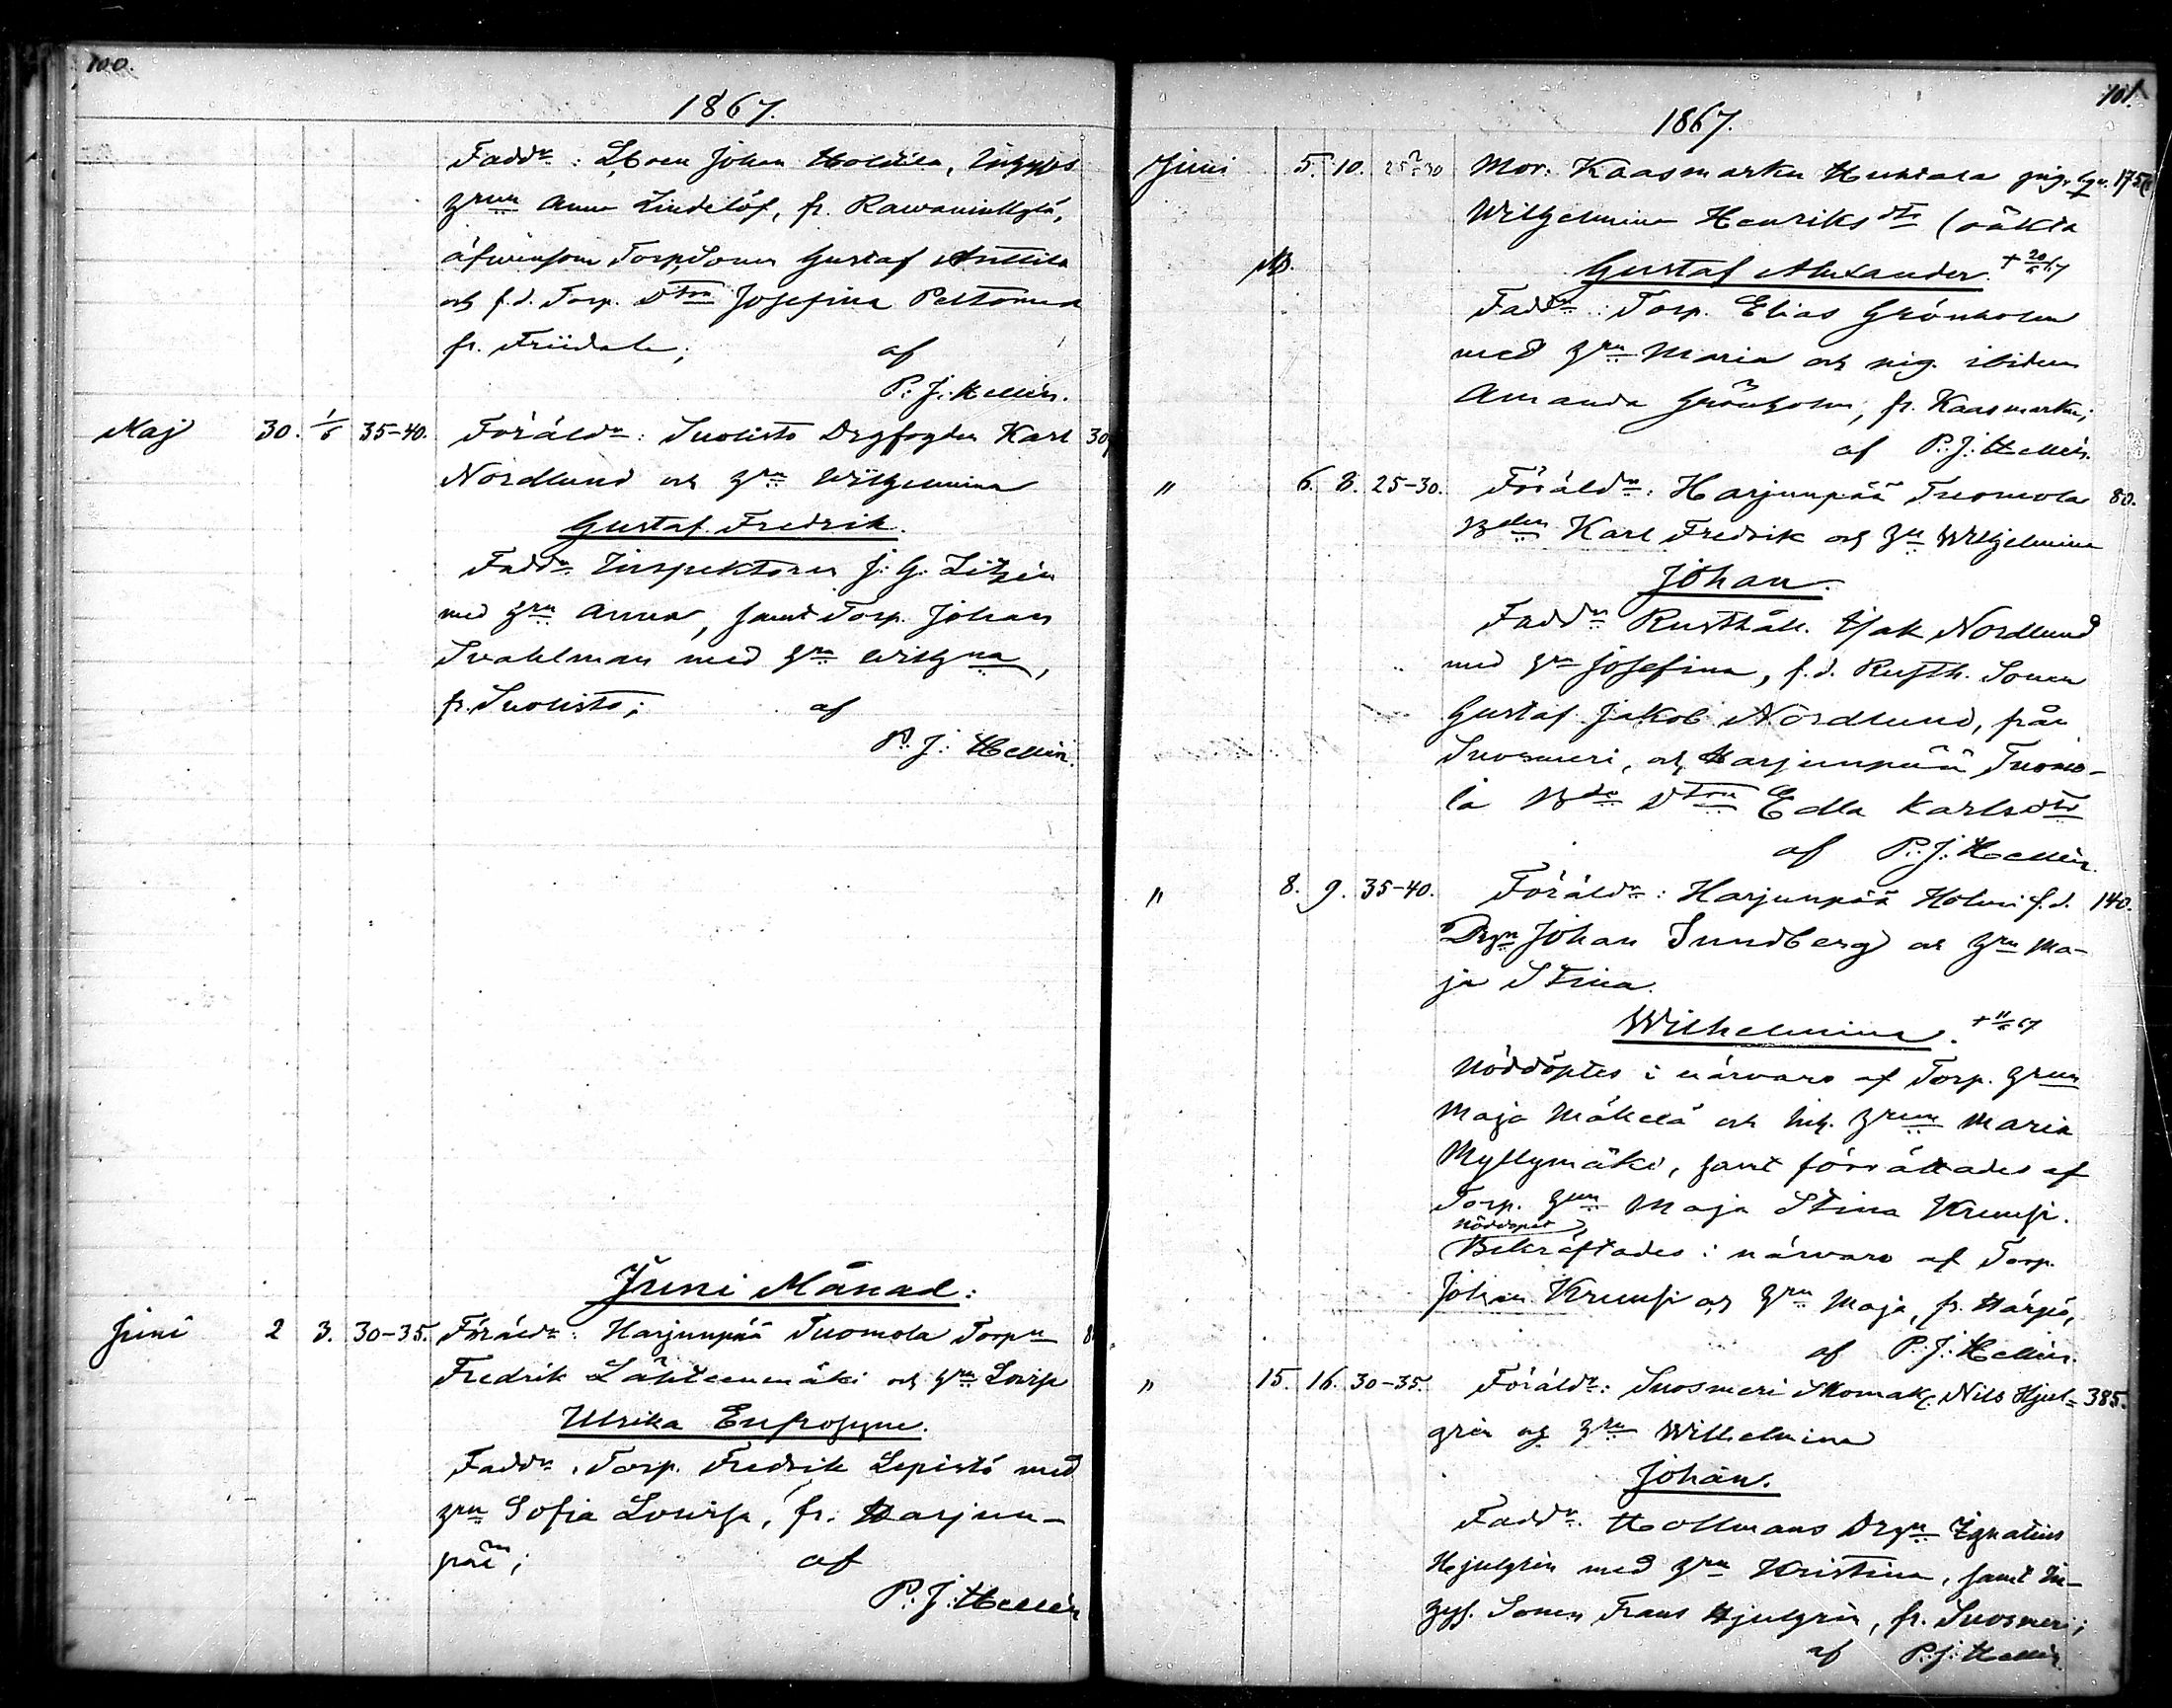 100.
1867.
Faddr: Johan Inhyses
hrun Anna Lindelöf, fr. Rawaninkylä,
äfvensom Torp. Sonen Gustaf Anttila
och f.d. Torp. Dtrn Josefina Peltomaa
fr. Friidala; af
P. J. Hellén.
Maj 30. 1/6 35-40. Föräldr: Suolisto Drgfogden Karl 30
Nordlund och hru Wilhelmina
Gustaf Fredrik.
Faddr Inspektoren J. G. Litzén
med hru Anna, samt Torp. Johan
Svahlman med hru Wilhna,
fr. Suolisto; af
P. J. Hellén.
Juni Månad:
Juni 2 3. 30-35. Föräldr: Harjunpää Tuomola Torpn 8
Fredrik Lähteenmäki och hru Lovisa
Ulrika Eufrosyne.
Faddr: Torp. Fredrik Lepistö med
hru Sofia Lovisa, fr. Harjun-
pää; af
P. J. Hellén
101.
1867.
Juni 5. 10. 25?-30 Mor. Kaasmarku pig. 175
Wilhelmina Henriksdtr (oäkta
NB. Gustaf Alexander. + 20/6 67
Faddr: Torp. Elias Grönholm
med hru Maria och pig. ibidem
Amanda Grönholm, fr. Kaasmarku;
af P. J. Hellén.
" 6. 8. 25-30. Föräldr: Harjunpää Tuomola 80.
Bden Karl Fredrik och hu Wilhelmina
Johan.
Faddr Rusthåll. Isak Nordlund
med hru Josefina, f.d. Rusth. Sonen
Gustaf Jakob Nordlund, från
Suosmeri, och Harjunpää Tuomo-
la Bde Dtrn Edla Karlsdtr
af P. J. Hellén.
" 8. 9. 35-40. Föräldr: Harjunpää Holmi f.d. 140.
Drgn Johan Sundberg och hru Ma-
ja Stina.
Wilhelmina. + 11/6 67
Nöddöptes i närvaro af Torp. hrun
Maja Mäkelä och Inh. hrun Maria
Myllymäki, samt förrättades af
Torp. hun Maja Stina Krunsi.
Nöddopet
Bekräftades i närvaro af Torp.
Johan Krunsi och hru Maja, fr. Härpö,
af P. J. Hellén.
" 15. 16. 30-35. Föräldr: Suosmeri Skomak. Nils Hjul- 385.
grén och hru Wilhelmina
Johan.
Faddr. Hollmans Drgn Ignatius
Hjulgrén med hru Kristina, samt In-
hys. Sonen Frans Hjulgrén, fr. Suosmeri;
af P. J. Hellén